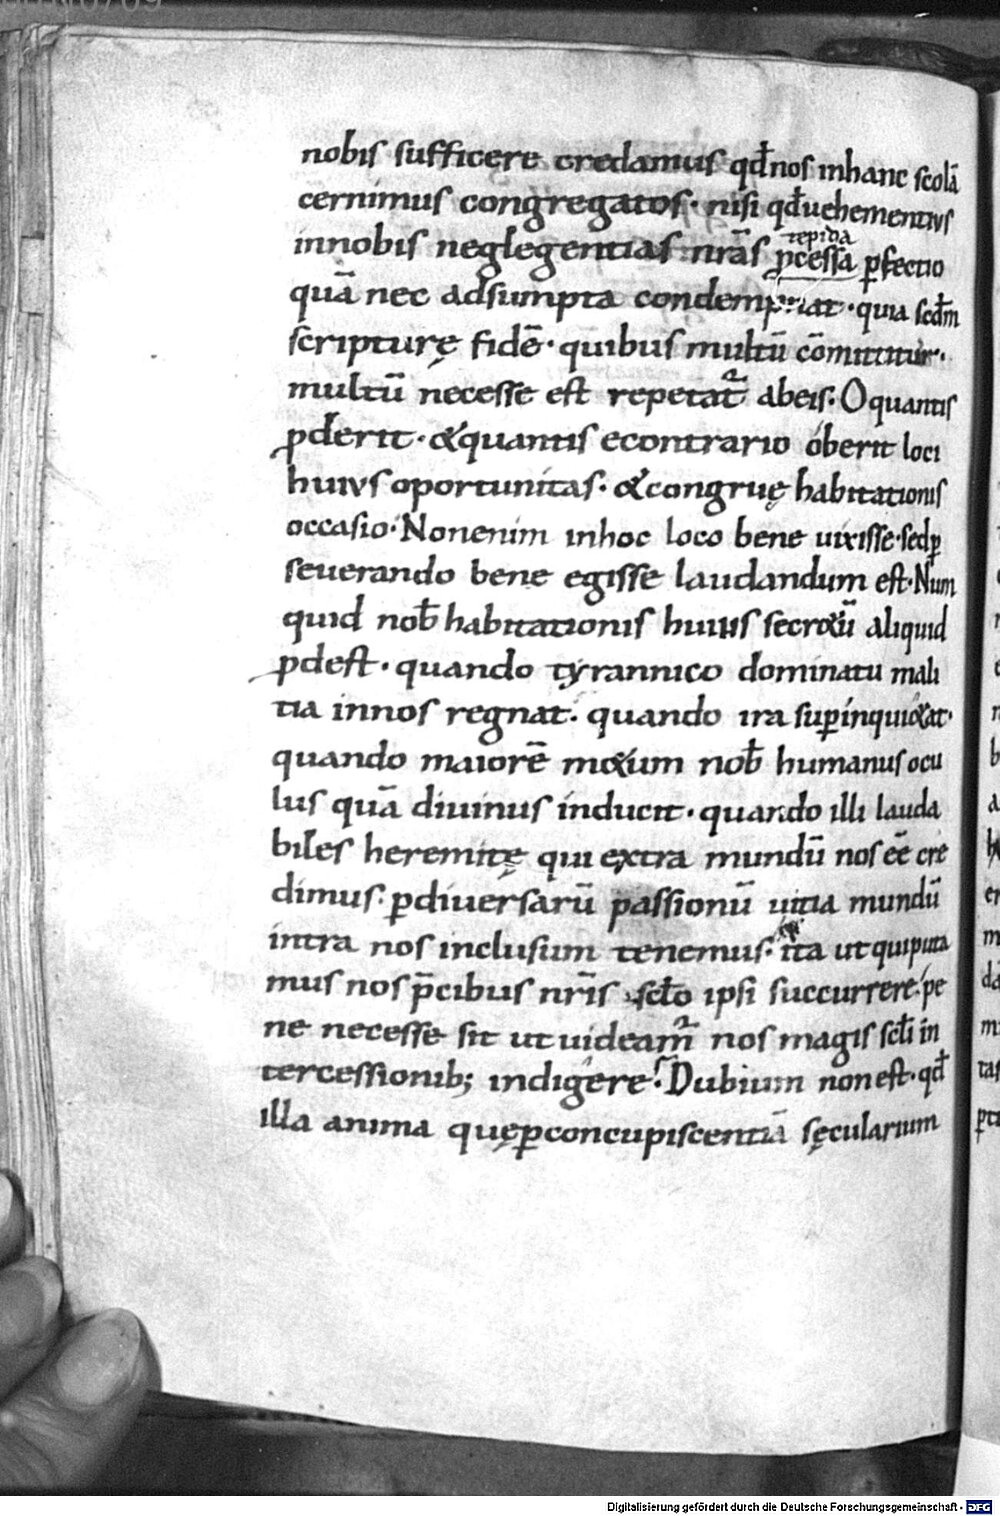 nobis sufficere credamus qđ nos inhanc scolā
cernimus congregatos· nisi qđ uehementius
innobis neglegentias nrās p̄cessa ꝑfectio
tepida
quā nec adsumpta condempnat· quia scdm̄
scripturę fidē· quibus multū cōmittitur·
multū necesse est repetat᷑ abeis· O quantis
ꝓderit· &quantis econtrario oberit loci
huius oportunitas· &congruę habitationis
occasio· Nonenim inhoc loco bene uixisse· sedꝑ
seuerando bene egisse laudandum est· Num
quid nob̄ habitationis huius secr&ū aliquid
ꝓdest· quando tyrannico dominatu mali
tia innos regnat· quando ira suꝑ inqui&at·
quando maiorē m&um nob̄ humanus ocu
lus quā diuinus inducit· quando illi lauda
biles heremitę qui extra mundū nos eē cre
dimus· ꝑdiuersarū passionū uitia mundū
intra nos inclusum tenemus· ita ut quiputa
mus nos p̄cibus nrīs scl̄o ipsi succurrere· pe
ne necesse sit ut uideam᷑ nos magis scl̄i in
tercessionib; indigere· Dubium non est· qđ
illa anima quęꝑconcupiscentiā sęcularium
Digitalisierung gefördert durch die Deutsche Forschungsgemeinschaft - DFG